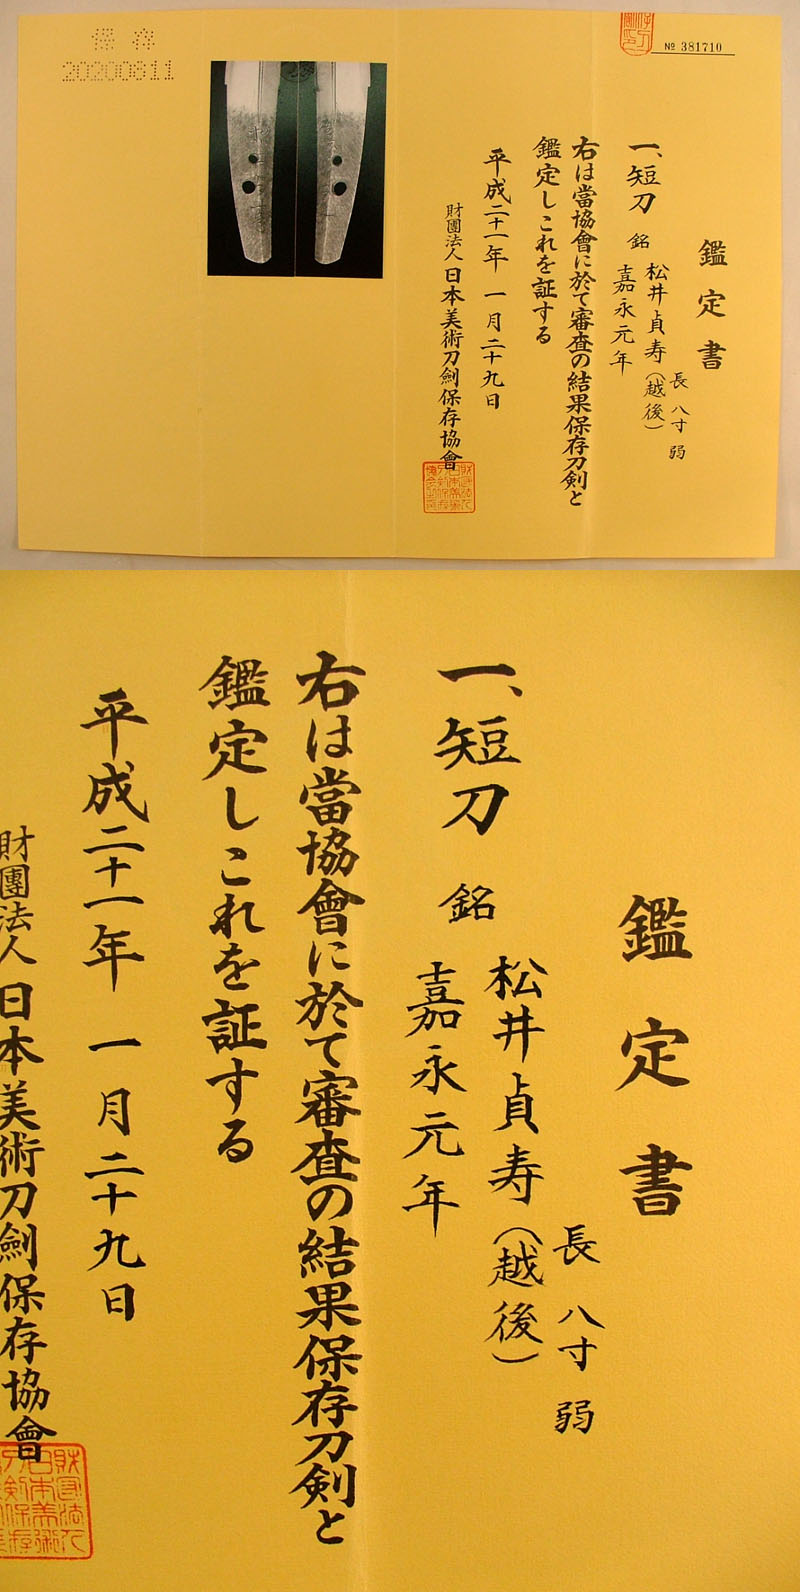 保存
20200811
№ 381710
鑑定書
長 八寸 弱
一、短刀 銘 松井貞寿(越後)
嘉永元年
右は當協會に於て審査の結果保存刀剣と
鑑定しこれを証する
平成二十一年 一月二十九日
財團法人 日本美術刀劍保存協會
鑑定書
長 八寸 弱
一、短刀 銘 松井貞寿(越後)
嘉永元年
右は當協會に於て審査の結果保存刀剣と
鑑定しこれを証する
平成二十一年 一月二十九日
財團法人 日本美術刀劍保存協會